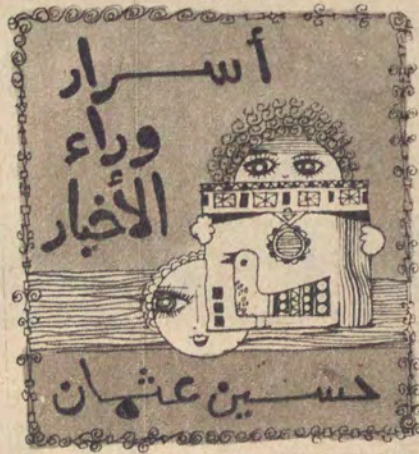 أســـرار
وراء
الأخبار
حسين عثمان